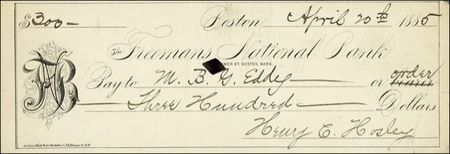 $300— Boston April 20th 1885
The Freemans National Bank
BOSTON, MASS.
Pay to M. B. G. Eddy or order
Three Hundred Dollars
Henry E. Hosley